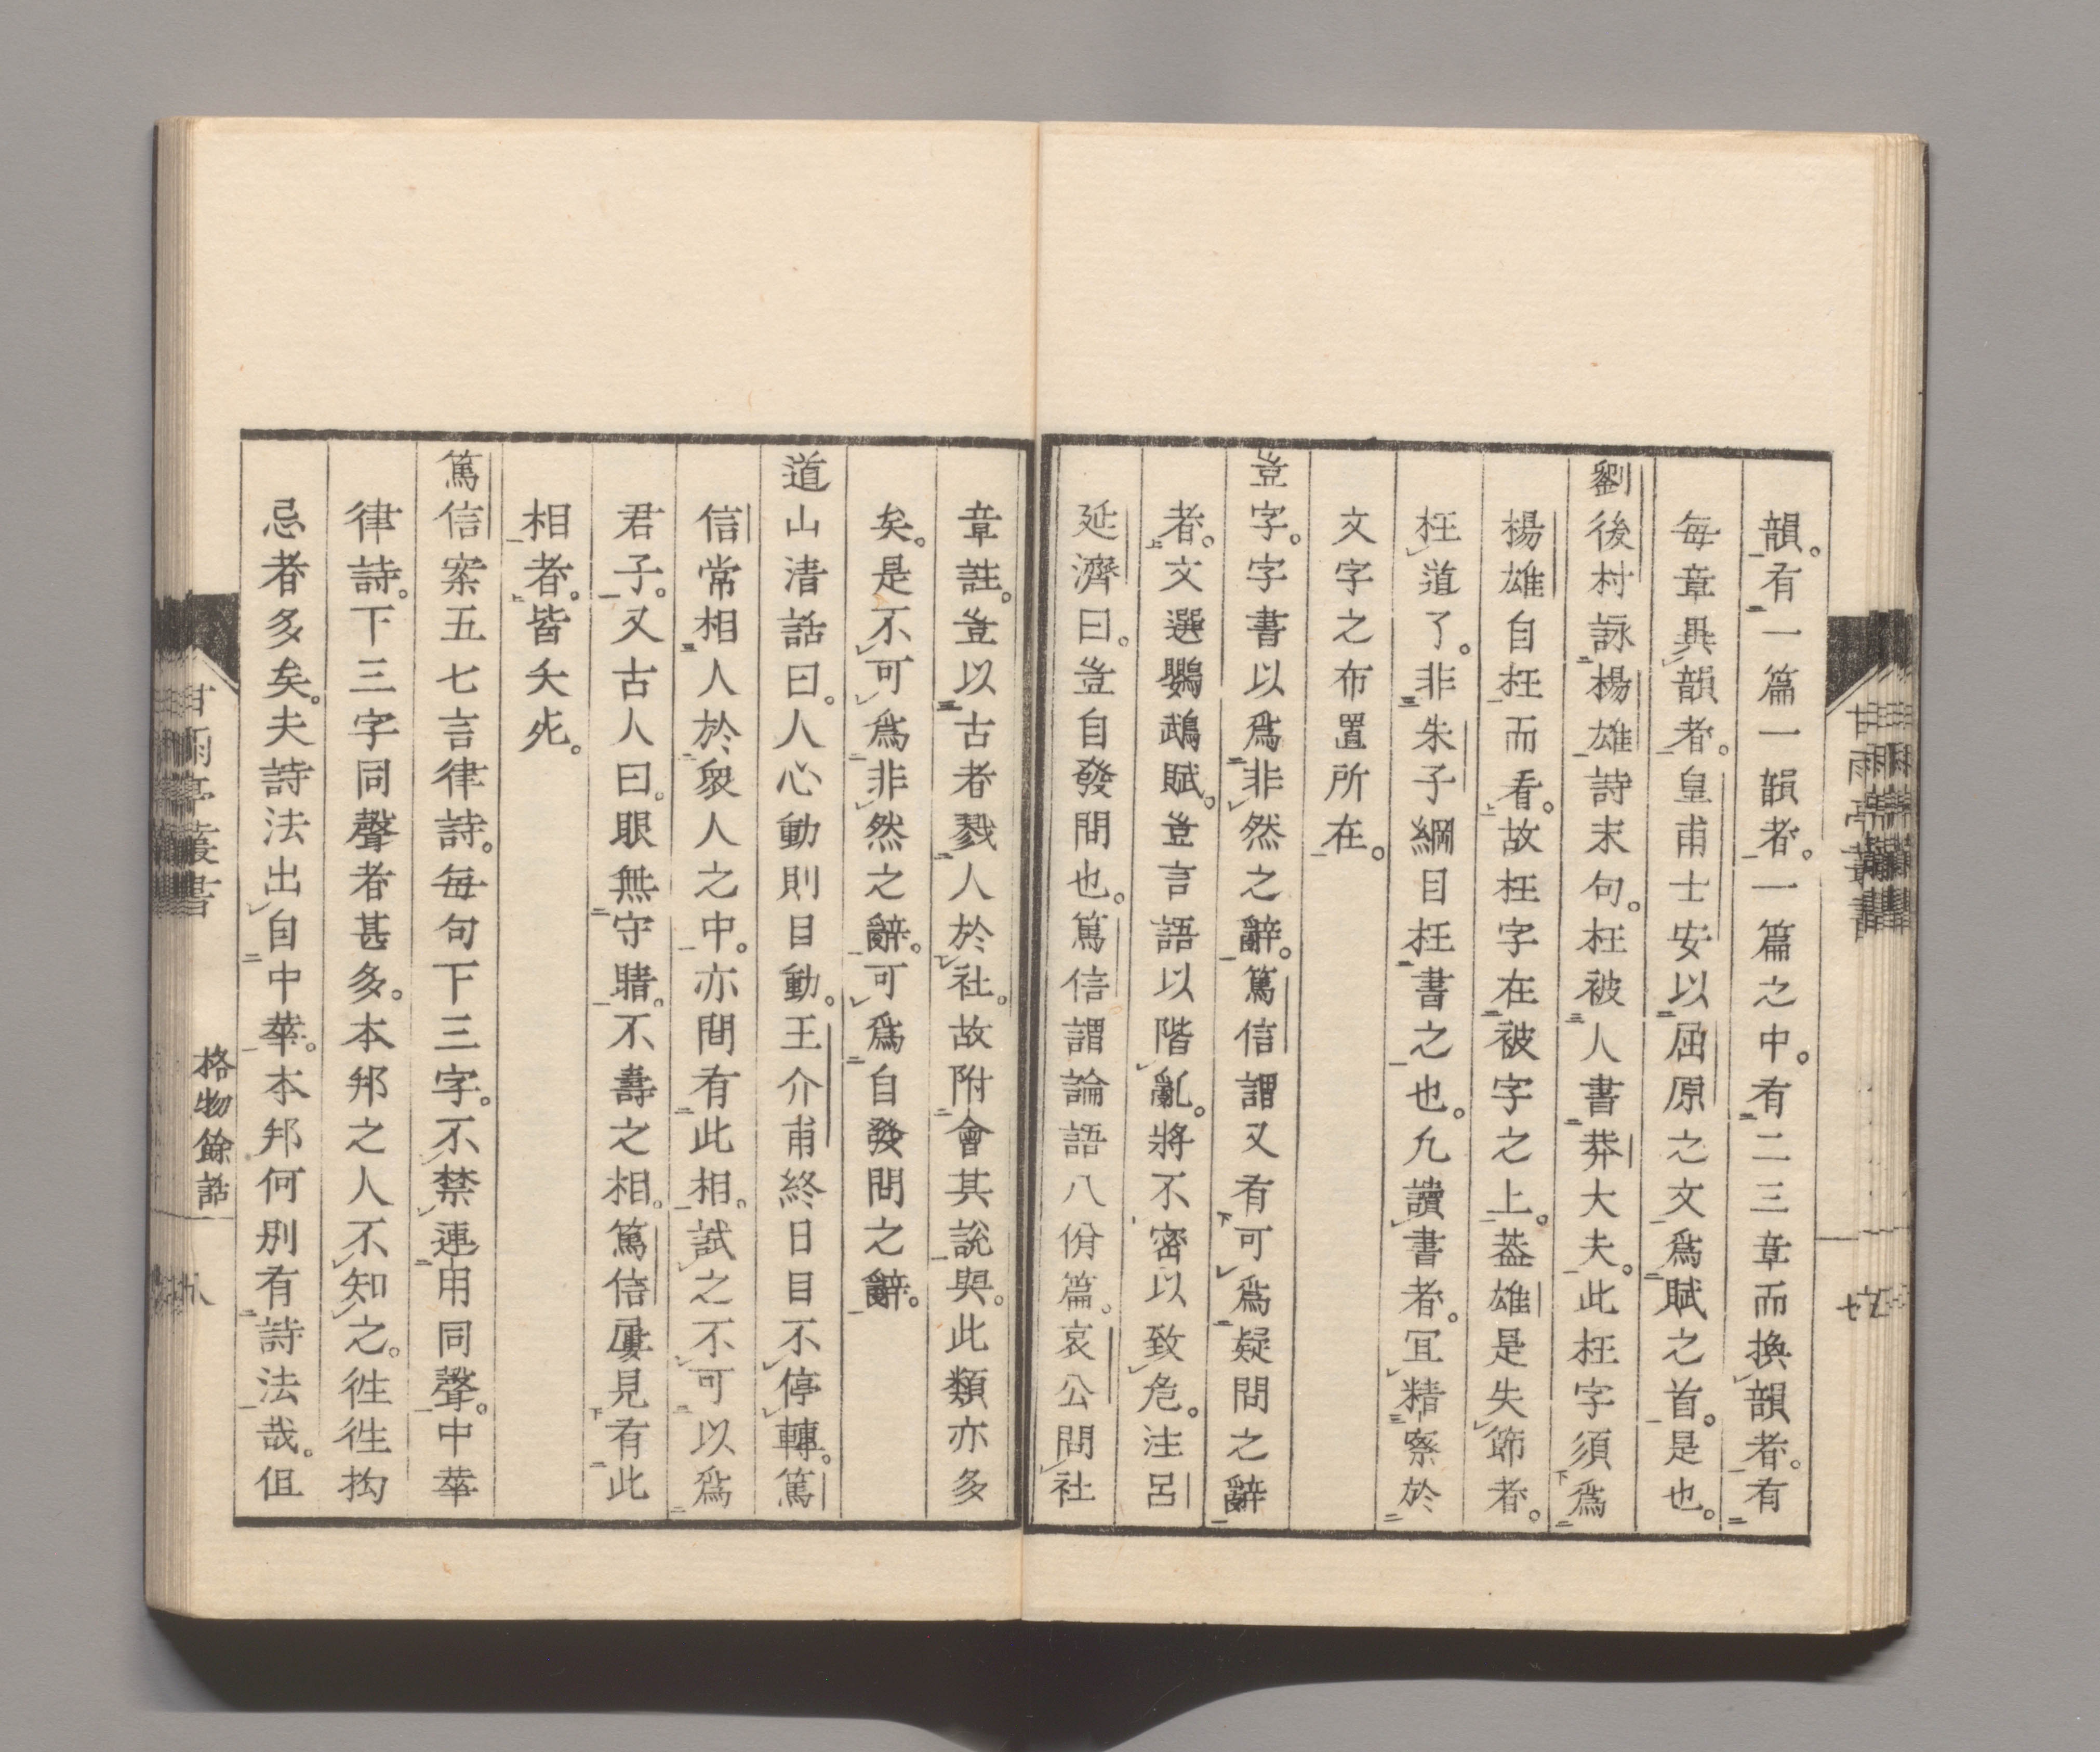 韻。有一篇一韻者。一篇之中。有二三章而換韻者。有
每章異韻者。皇甫士安以屈原之文爲賦之首。是也。
劉後村詠楊雄詩末句。枉被人書莽大夫。此枉字須爲
楊雄自枉而看。故枉字在被字之上。葢雄是失節者。
枉道了。非朱子綱目枉書之也。凢讀書者。冝精察於
文字之布置所在。
豈字。字書以爲非然之辭。篤信謂又有可爲疑問之辭
者。文選鸚鵡賦。豈言語以階亂。將不密以致危。注呂
延濟曰。豈自發問也。篤信謂論語八佾篇。哀公問社
章註。豈以古者戮人於社。故附會其說與。此類亦多
矣。是不可爲非然之辭。可爲自發問之辭。
道山清話曰。人心動則目動。王介甫終日目不停轉。篤
信常相人於衆人之中。亦間有此相。試之不可以爲
君子。又古人曰。眼無守睛。不壽之相。篤信屢見有此
相者。皆夭死。
篤信案五七言律詩。每句下三字。不禁連用同聲。中華
律詩。下三字同聲者甚多。本邦之人不知之。徃徃拘
忌者多矣。夫詩法出自中華。本邦何別有詩法哉。但
甘雨亭叢書
格物餘話
八
甘雨亭叢書
七